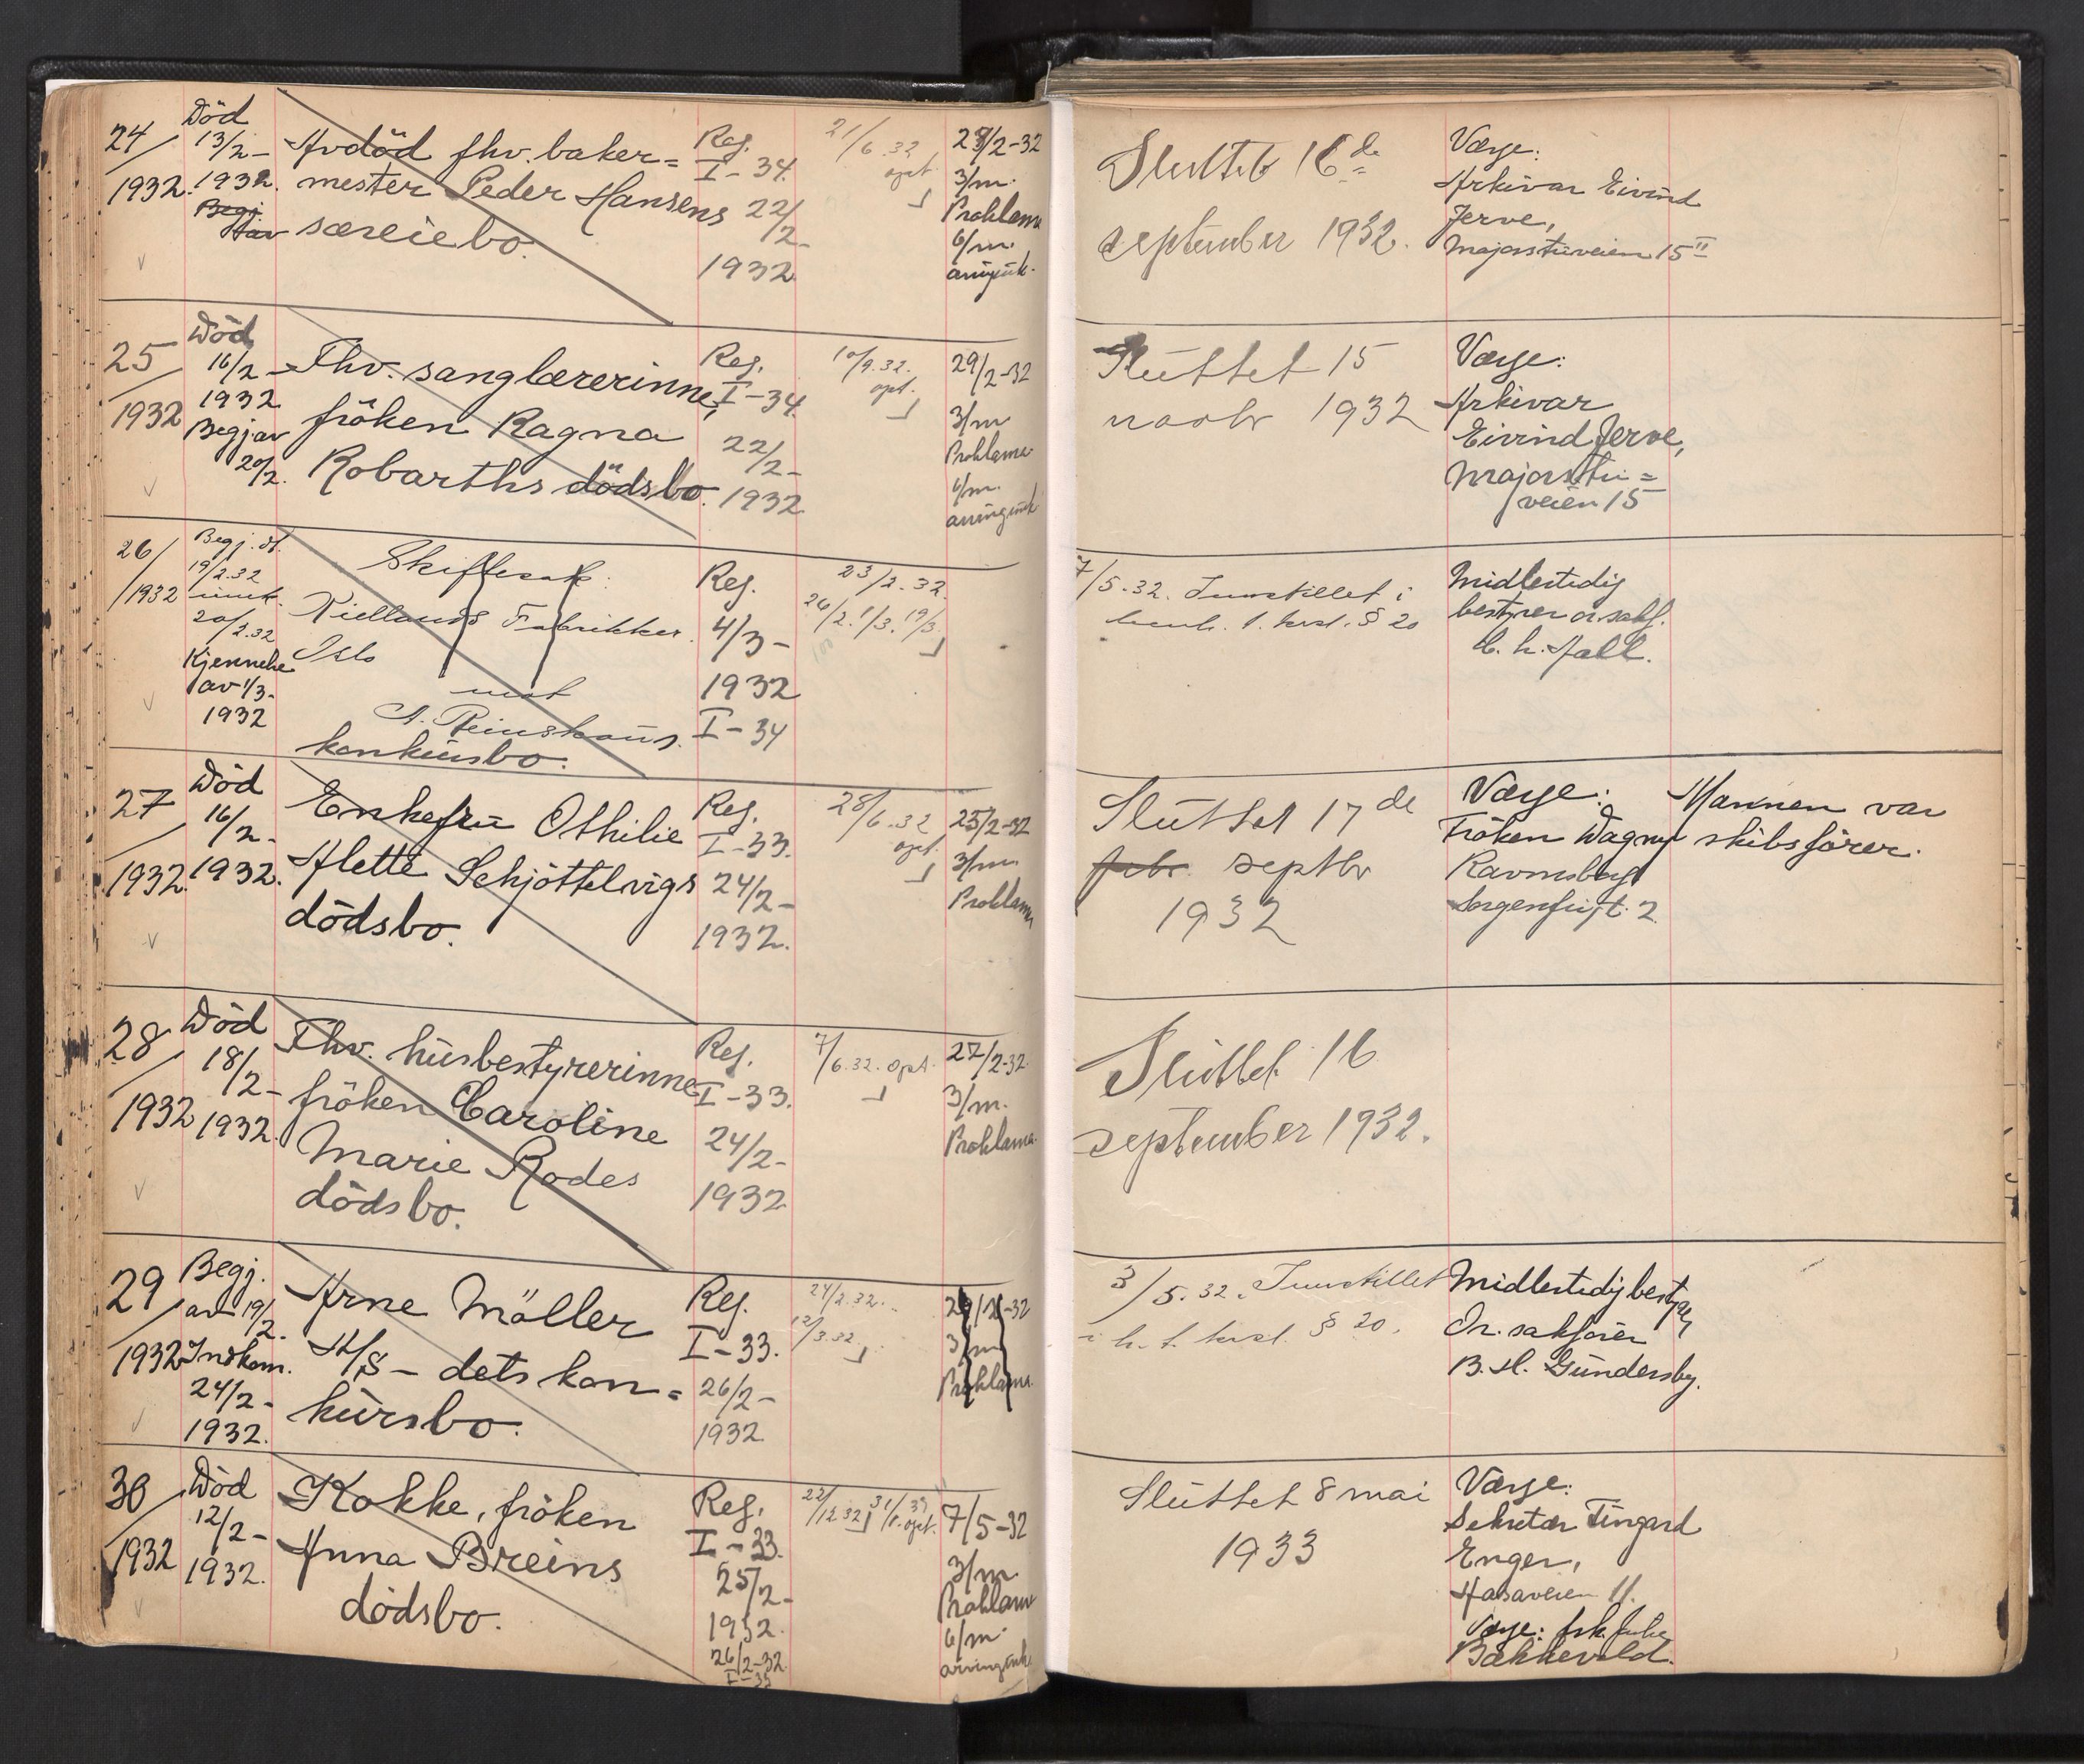 24/1932.
Död
13/2-
1932.
Begj.
av
Avdöd fhv. baker=
mester Peder Hansens
særeiebo.
Reg.
I-34.
22/2-
1932
21/6.32
opt.
3/m.
Proklama
6/m.
Sluttet 16de
september 1932.
Værge:
Arkivar Eivind
Jerve,
Majorstuveien 15 II
25/1932
Död
16/2-
1932
Begj av
20/2.
Fhv. sanglærerinne,
fröken Ragna
Robarths dödsbo.
Reg.
I-34.
22/2-
1932
10/9.32.
opt.
29/2-32
3/m
Proklama.
6/m.
Sluttet 15
novbr 1932
Værge:
Arkivar
Eivind Jerve,
Majorstu=
veien 15
26/1932
Begj. dt.
19/2.32
innk.
20/2.32
Kjennelse
av 1/3-
1932
Skiftesak:
Kiellands Fabrikker.
Oslo
mot
konkursbo.
Reg.
4/3-
1932
I-34
23/2.32.
26/2. 1/3. 19/3.
7/5.32. Innstillet i
henh. t. krsl. § 20
Midlertidig
bestyrer or.sakf.
C. h. Fall.
27/1932.
Död
16/2-
1932.
Enkefru Othilie
Alette Schjöttelvigs
dödsbo.
Reg.
I-33.
24/2-
1932.
28/6.32
opt.
25/2-32
3/m
Proklama
Sluttet 17de
febr. septbr
1932
Værge:
Fröken Dagny
Ravnsborg
Sorgenfrigt. 2.
Mannen var
skibsförer.
28/1932
Död
18/2-
1932.
Fhv. husbestyrerinne
fröken Caroline
Marie Rodes
dödsbo.
Reg.
I-33.
24/2-
1932
7/6.32. opt.
27/2-32.
3/m.
Proklama.
Sluttet 16
september 1932.
29/1932
Begj.
av 19/2.
Indkom.
24/2-
1932.
Arne Möller
A/S - dets kon=
kursbo.
Reg.
I-33.
26/2-
1932.
24/2.32.
12/3.32.
3/m
Proklama.
3/5.32. Innstillet
i h. t. krsl. § 20.
Midlertidig bestyrer
Or. sakförer
B. H. Gundersby.
30/1932
Död
12/2-
1932.
Kokke, fröken
Anna Breins
dödsbo.
Reg.
I-33.
25/2-
1932.
26/2-32.
I-33
22/12.32
31/1.33 opt.
7/5-32
3/m.
Proklama
6/m.
Sluttet 8 mai
1933
Værge:
Sekretær Tingard
Enger,
Hasaveien 11.
Værge: frk.
Bakkevold.